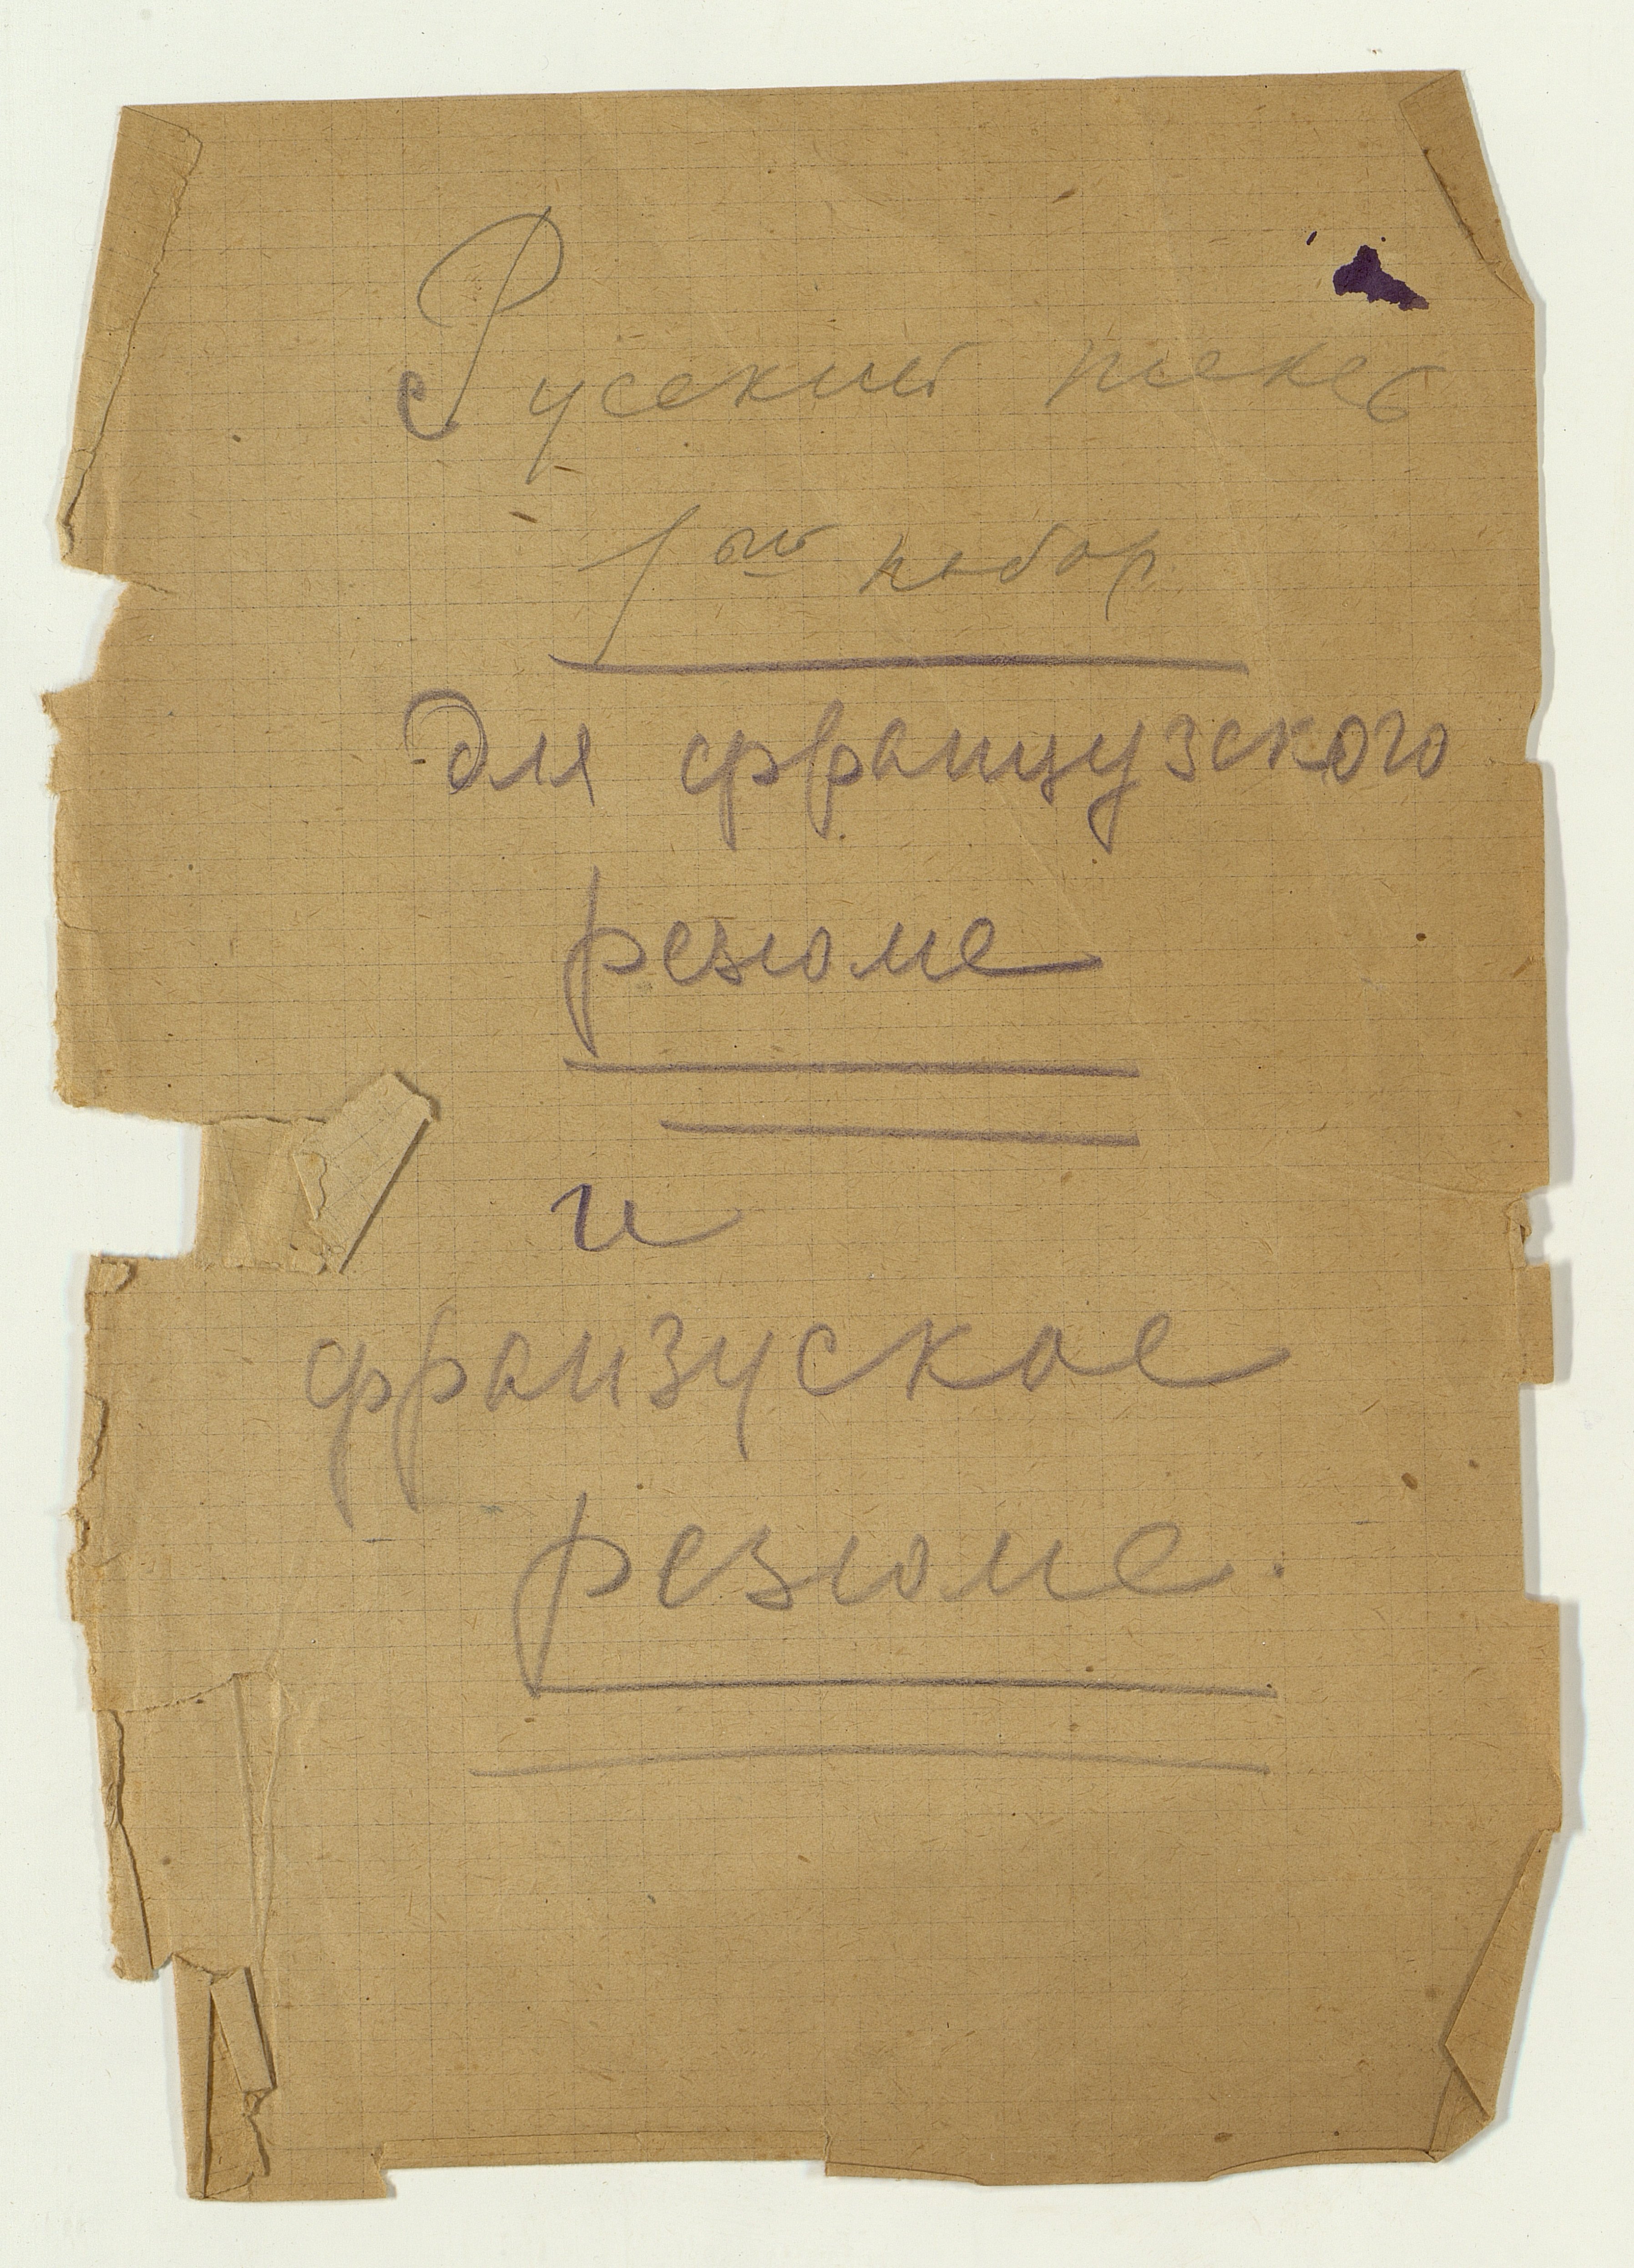 Русский текст
1ый набор
для французского
резюме
и
франзуское
резюме.